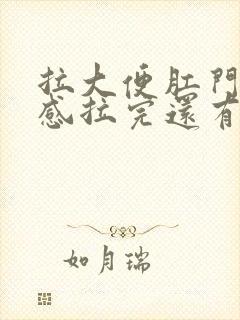 拉大便肛門
感拉完還有
如月瑞